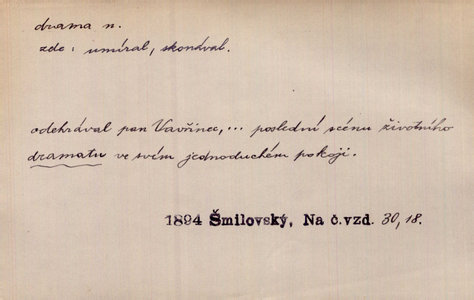 drama n.
zde: umíral, skonával.
odehrával pan Vavřinec, ... poslední scénu životního
dramatu ve svém jednoduchém pokoji.
1894 Šmilovský, Na č.vzd. 30, 18.